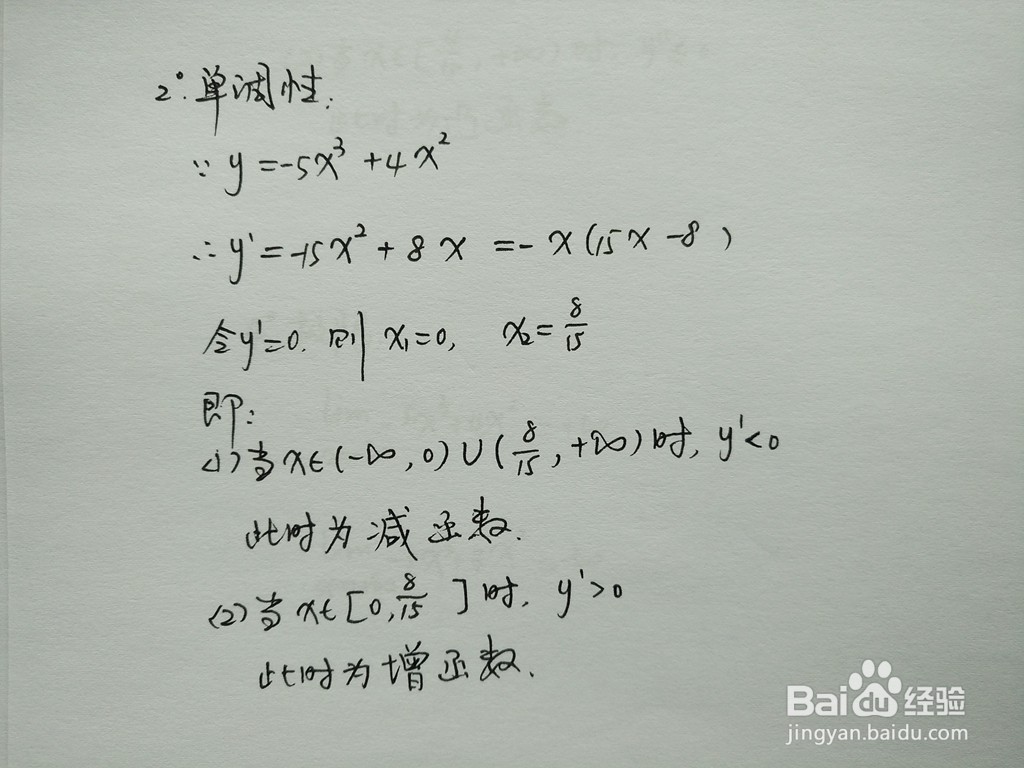 2°. 单调性:
∵ y = -5x³ + 4x²
∴ y' = -15x² + 8x = -x(15x-8)
令y'=0. 则 x₁=0, x₂=8/15
即:
(1) 当x∈(-∞,0)∪(8/15,+∞)时, y'<0
此时为减函数.
(2) 当x∈[0,8/15]时, y'>0
此时为增函数.
Baidu经验
jingyan.baidu.com